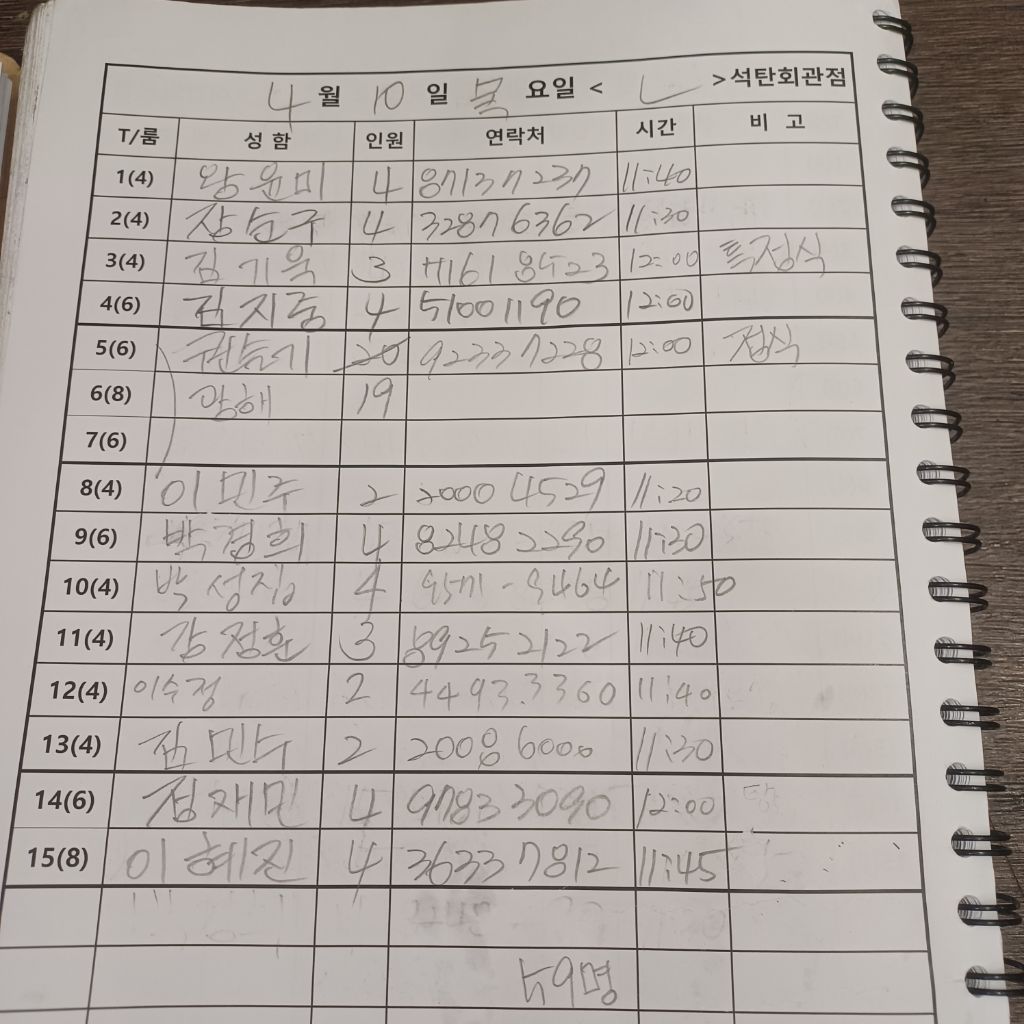 4 월 10 일 목 요일 < ㄴ > 석탄회관점
T/룸 성 함 인원 연락처 시간 비 고
1(4) 왕윤미 4 87137237 11:40
2(4) 장순구 4 32876362 11:30
3(4) 김기욱 3 12:00 특정식
4(6) 김지중 4 51001190 12:00
5(6) 권순기 20 92337228 12:00 정식
6(8) 광해 19
7(6)
8(4) 이민주 2 2000 4529 11:20
9(6) 박경희 4 82482290 11:30
10(4) 박성진 4 11:50
11(4) 강정훈 3 89252122 11:40
12(4) 이수정 2 4493.3360 11:40
13(4) 김민수 2 2008 6000 11:30
14(6) 정재민 4 97833090 12:00
15(8) 이혜진 4 36337812 11:45
59명